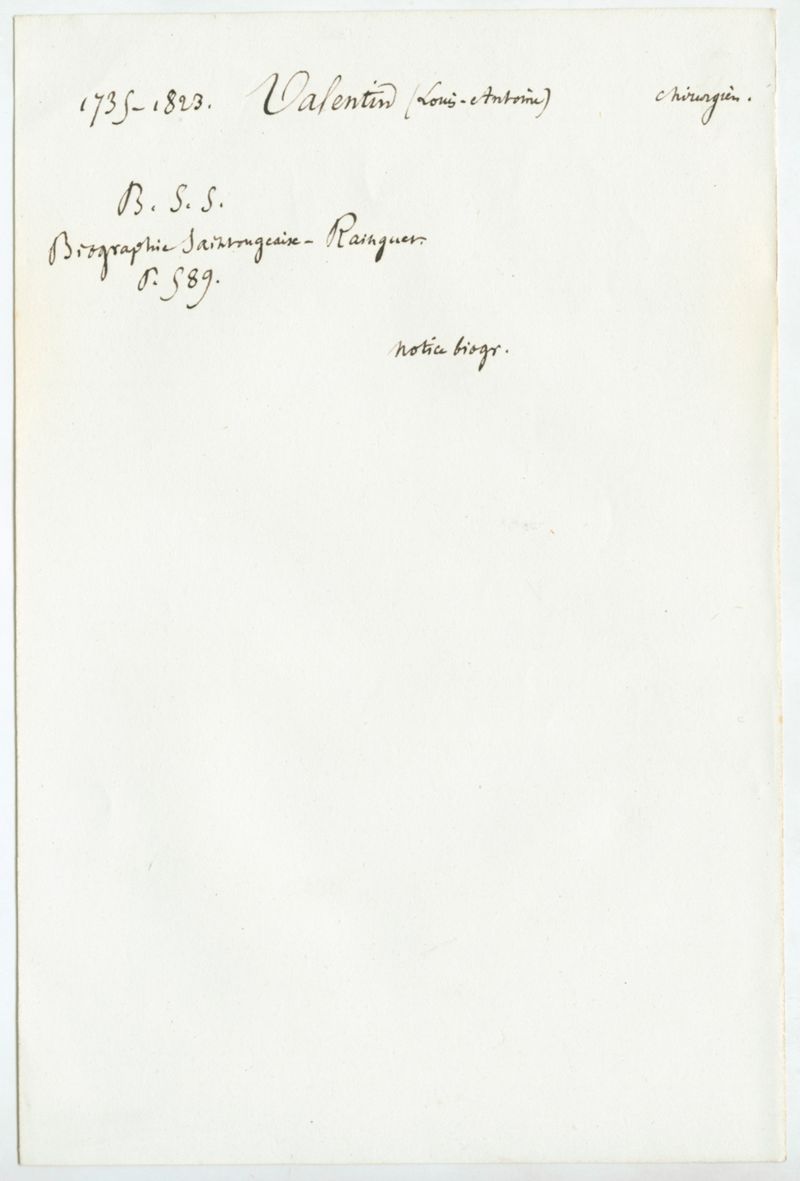 1735-1823. Valentin (Louis-Antoine) chirurgien.
B. S. S.
Biographie Saintongeaise - Rainguet.
P. 589.
notice biogr.